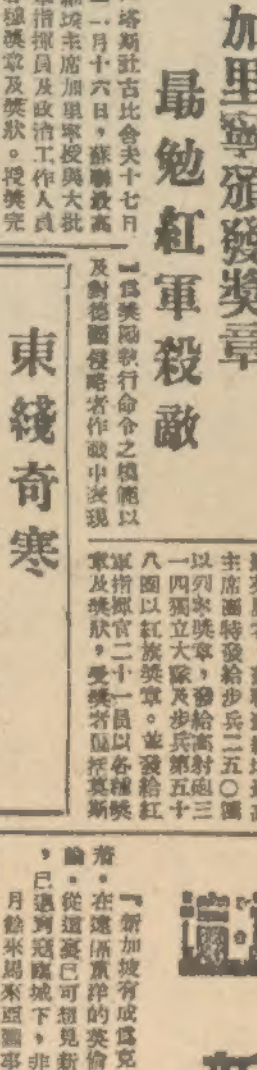 加里寧頒發獎章
勗勉紅軍殺敵
塔斯社古比舍夫十七日
二月十六日，蘇聯最高
主席加里寧授與大批
指揮員及政治工作人員
獎章及獎狀。授獎完
爲獎勵執行命令之模範以
及對德國侵略者作戰中表現
主席團特發給步兵二五〇團
以列寧獎章，發給高射砲三
一四獨立大隊及步兵第五十
八團以紅旗獎章。並發給紅
軍指揮官二十一員以各種獎
章及獎狀，受獎者包括莫斯
東綫奇寒
『新加坡有成爲克
在遠隔重洋的英倫
從這裏已可想見新
，已逼到冠蓋城下，非
月餘來馬來亞戰事